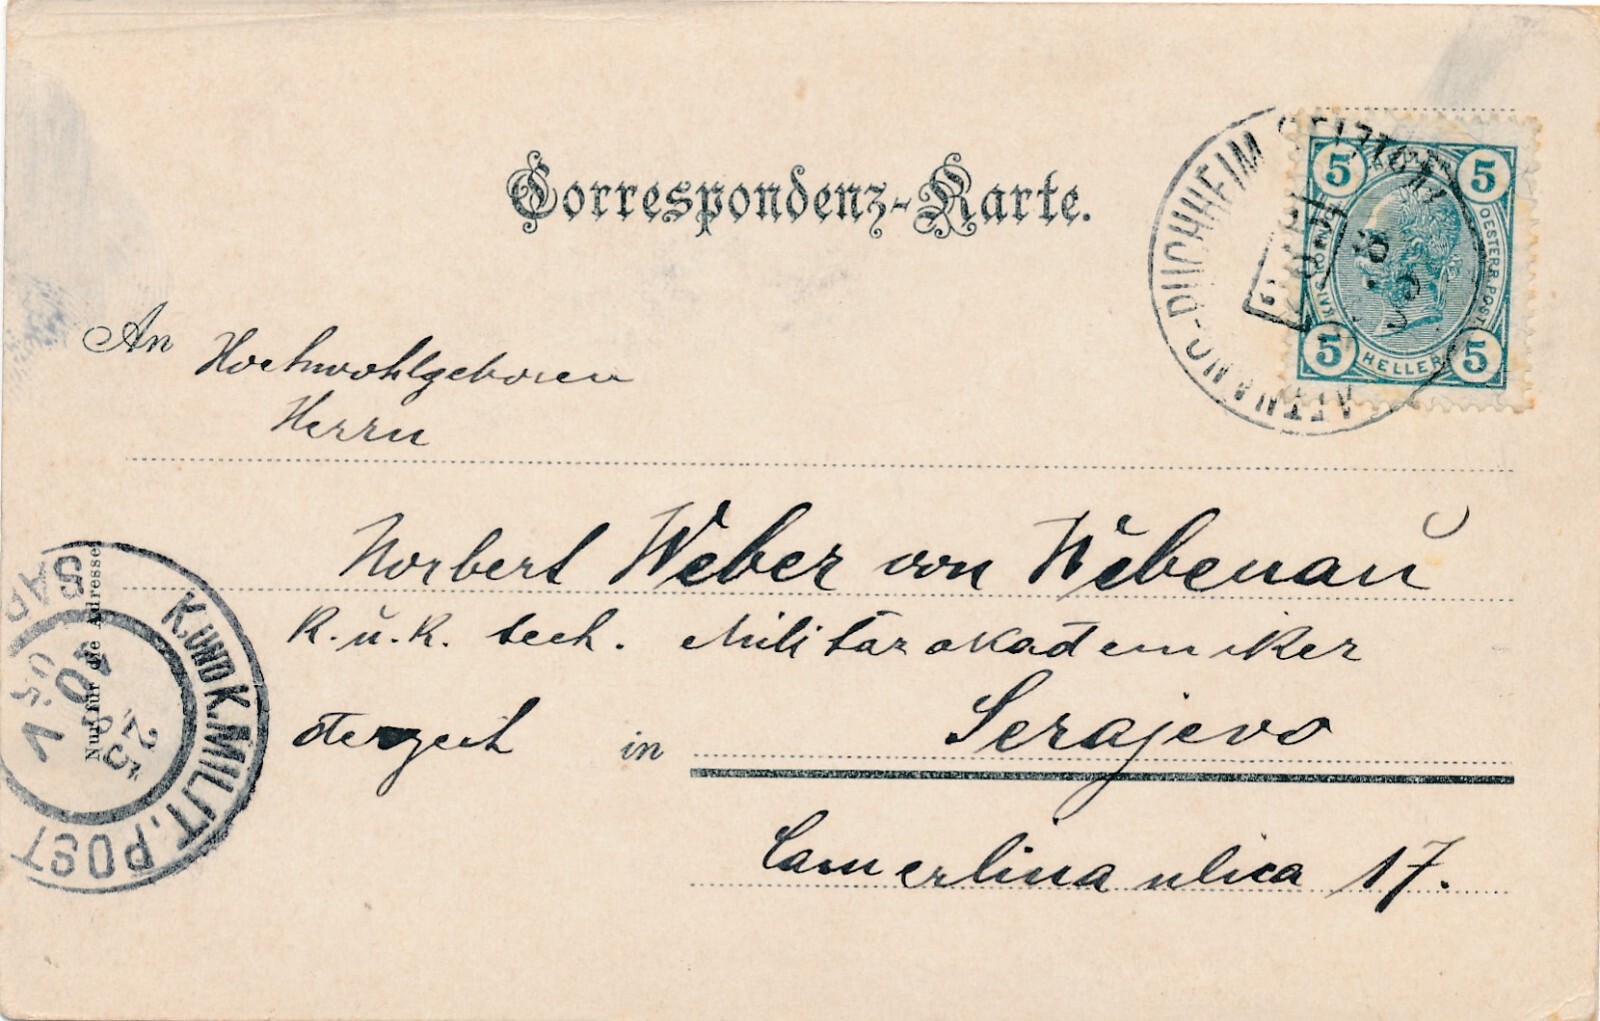 Correspondenz-Karte.
ATTNANG-PUCHHEIM
5 HELLER 5
OESTERR. POST.
5 HELLER 5
An Hochwohlgeboren
Herrn
Norbert Weber von Webenau
K. u. K. tech. Militärakademiker
derzeit in Serajevo
Camerlina ulica 17.
Nur für die Adresse
K. UND K. MILIT. POST
SAR
25
10 V
05